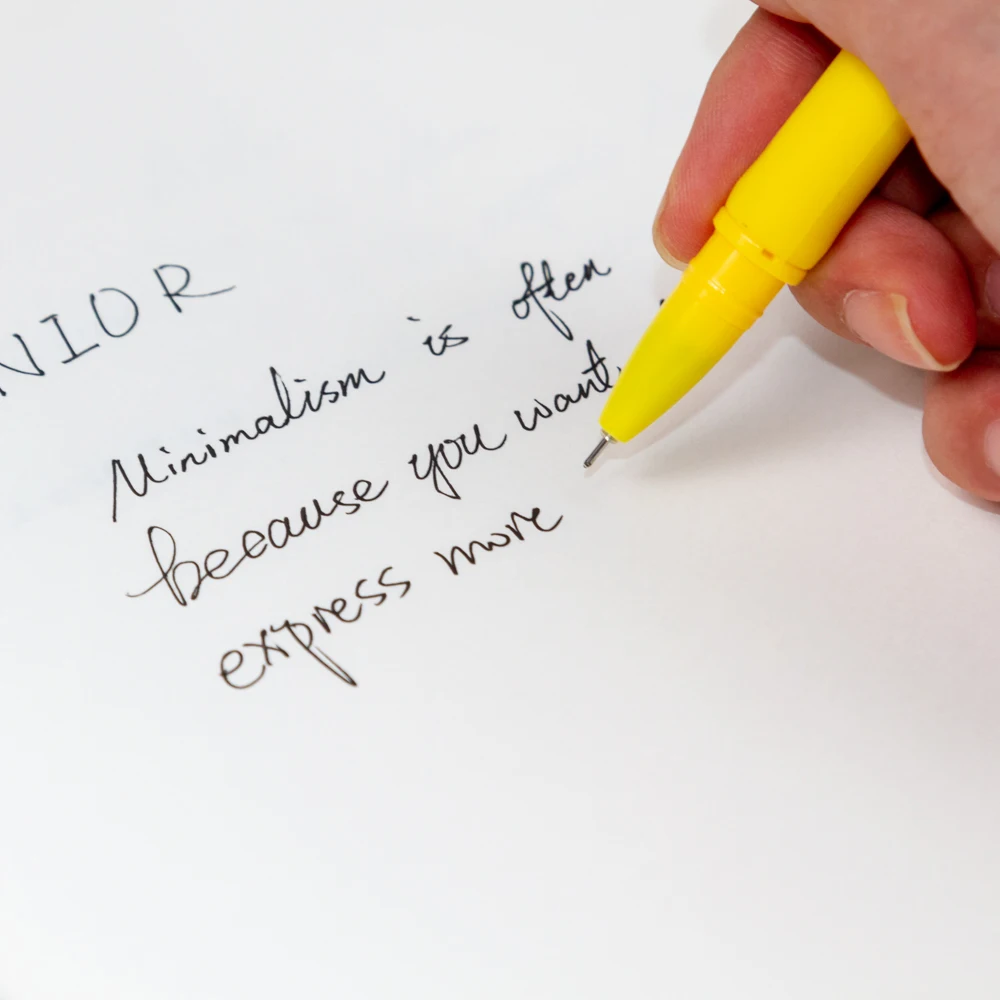 NIOR
Minimalism is often
because you want
express more